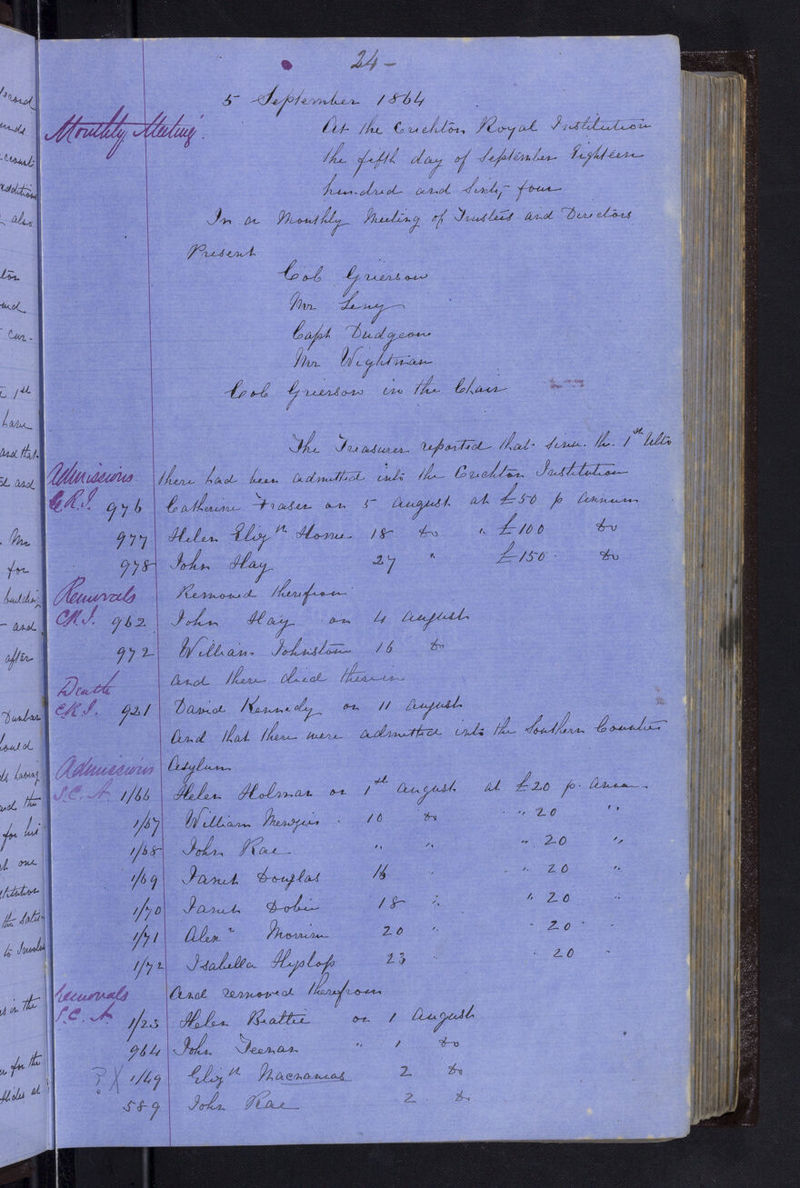 24 –
5 September 1864
Monthly Meeting. At the Crichton Royal Institution
the fifth day of September Eighteen
hundred and Sixty four
In a Monthly Meeting of Trustees and Directors
Present
Col Grierson
Mr Leny
Capt Dudgeon
Mr Wightman
Col Grierson in the Chair
The Treasurer reported that since the 1st Ulto
Admissions there had been admitted into the Crichton Institution
C.R.I. 976 Catherine Fraser on 5 August at £50 p annum
977 Helen Elizth Horne 18 do " £100 do
978 John Hay 27 " £150 do
Removals Removed therefrom
C.R.I. 962 John Hay on 4 August
972 William Johnstone 16 do
Death and there died therein
C.R.I. 921 David Kennedy on 11 August
And that there were admitted into the Southern Counties
Admissions Asylum
S.C.A. 1/66 Helen Holman on 1st August at £20 p. ann.
1/67 William Menzies 10 do " 20 "
1/68 John Rae " " " 20 "
1/69 Janet Douglas 16 " 20 "
1/70 Janet Dobie 18 " " 20 "
1/71 Alexr Morrison 20 " " 20 "
1/72 Isabella Hyslop 23 " " 20 "
Removals And removed therefrom
S.C.A. 1/23 Helen Beattie on 1 August
964 John Feenan " 1 do
? X 1/49 Elizth Macnamas 2 do
589 John Rae 2 do